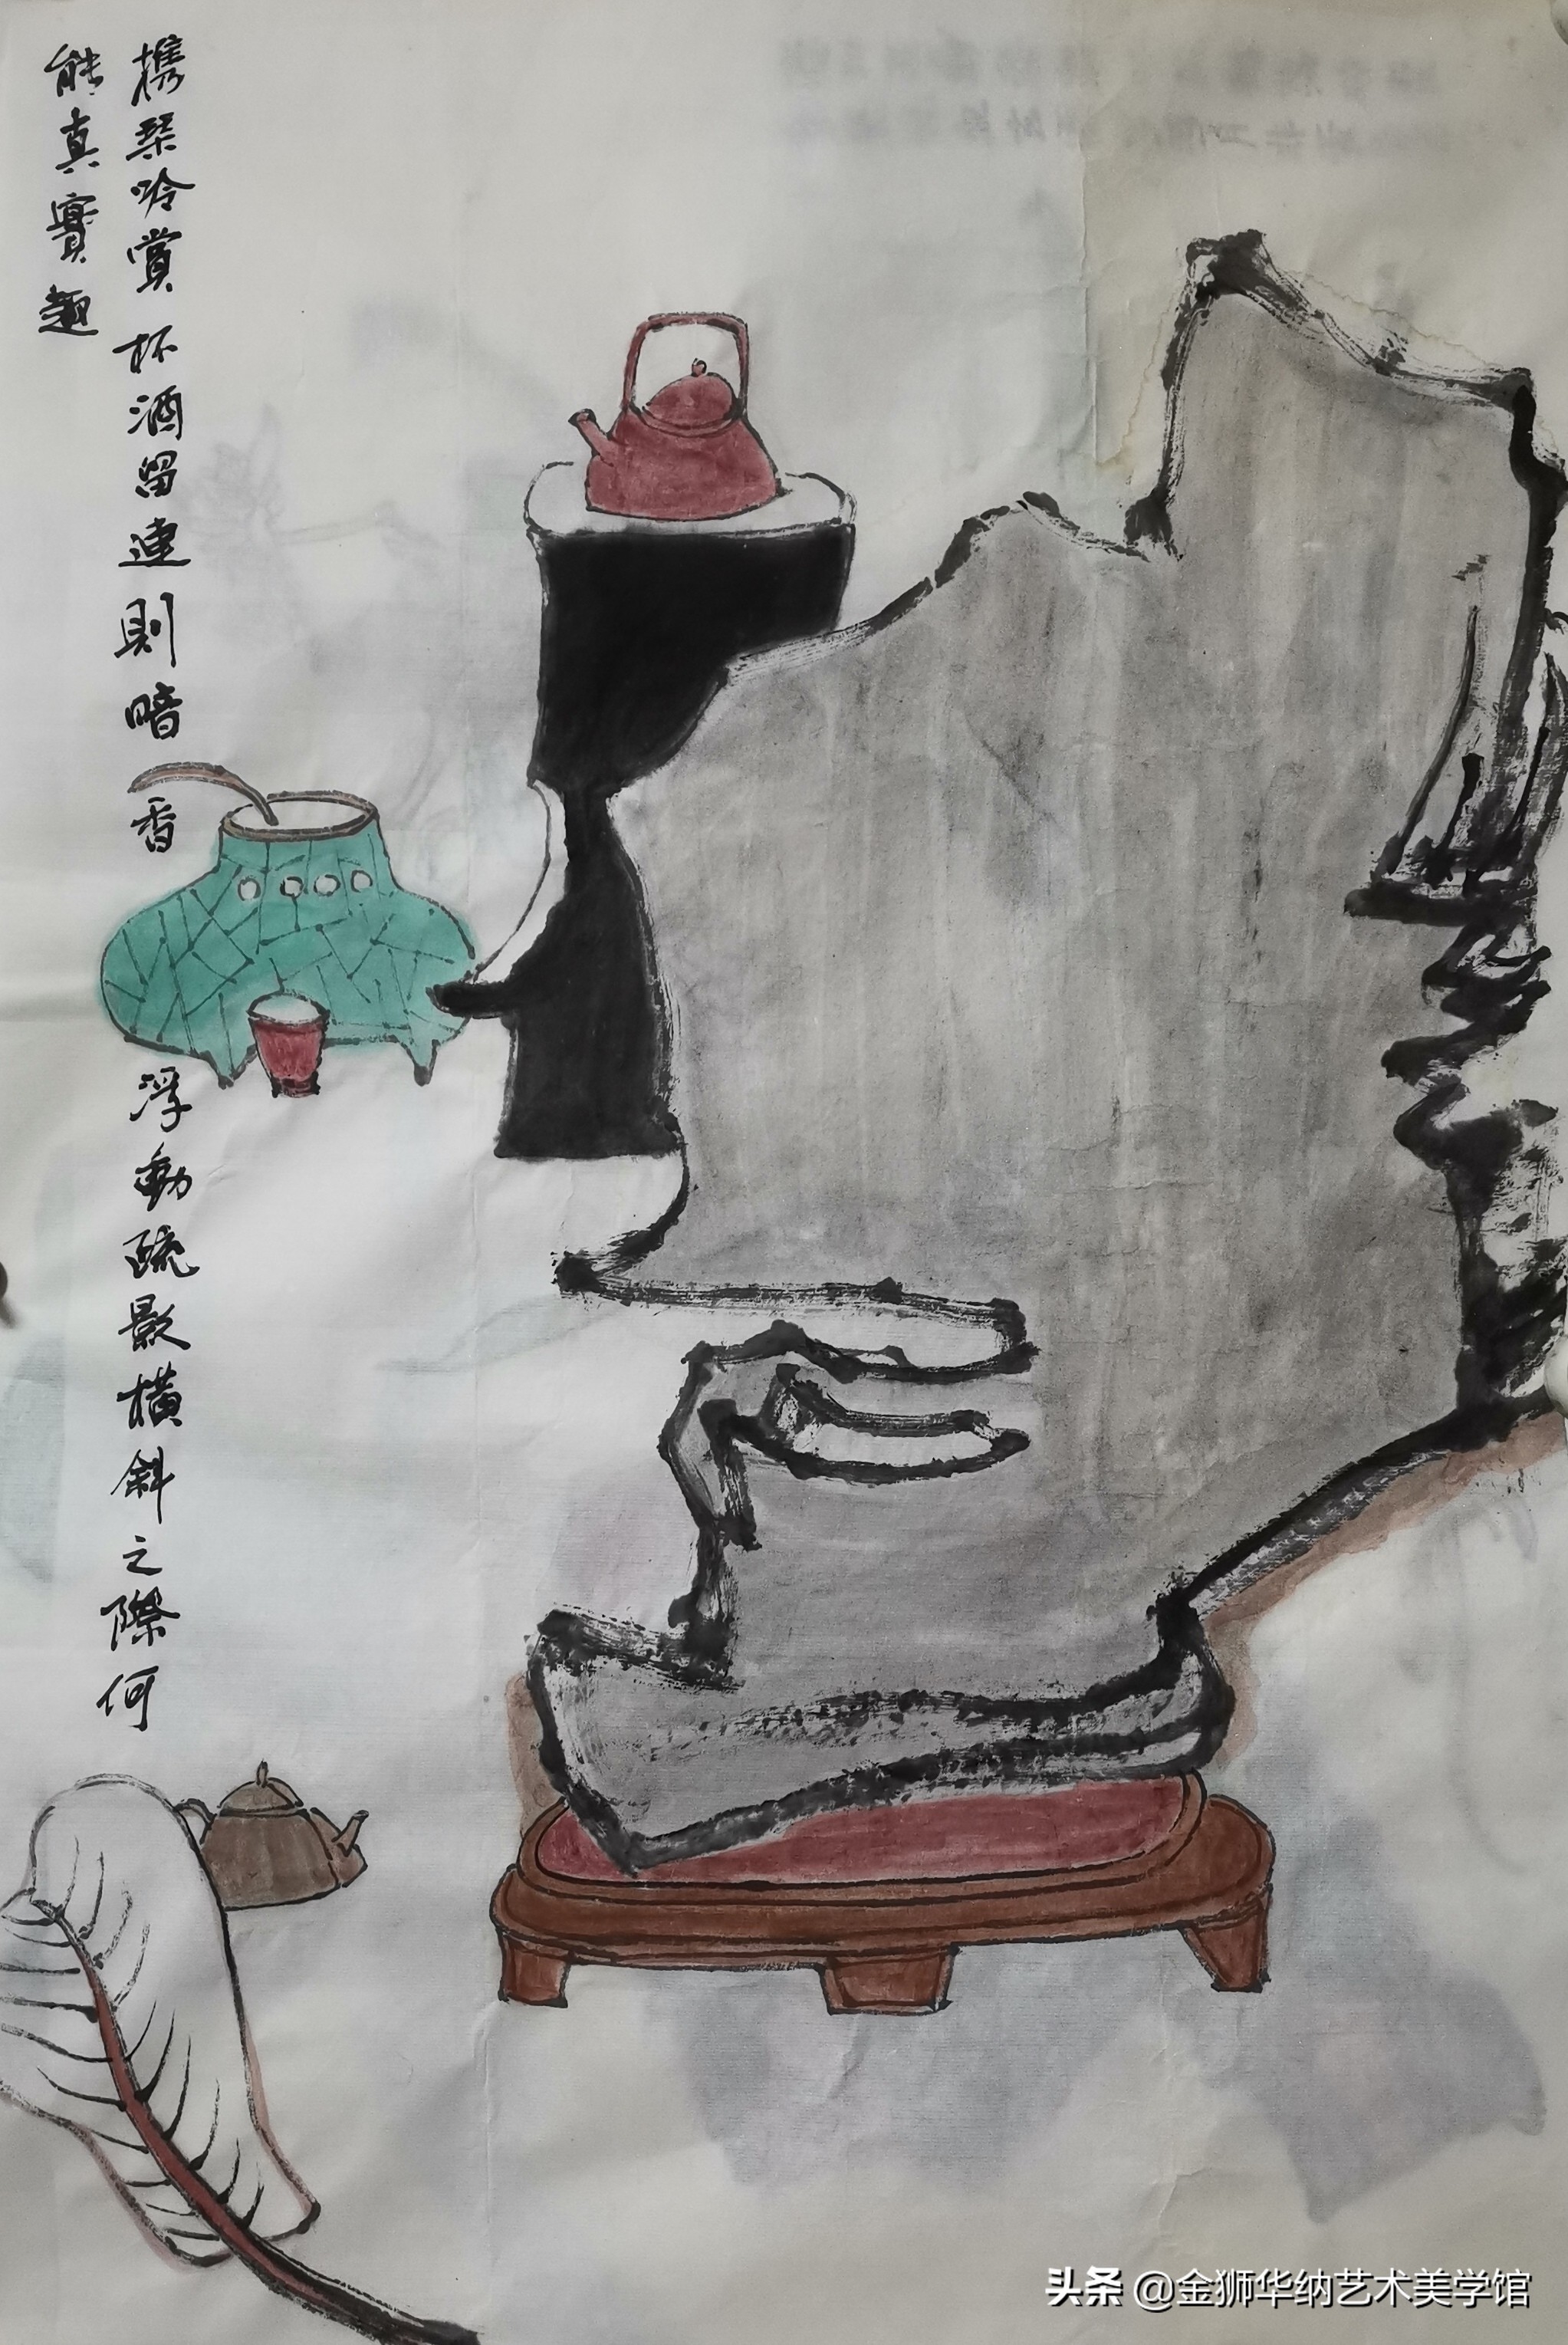 携琴吟賞杯酒留連則暗香浮動疏影橫斜之際何
能真實趣
头条 @金狮华纳艺术美学馆